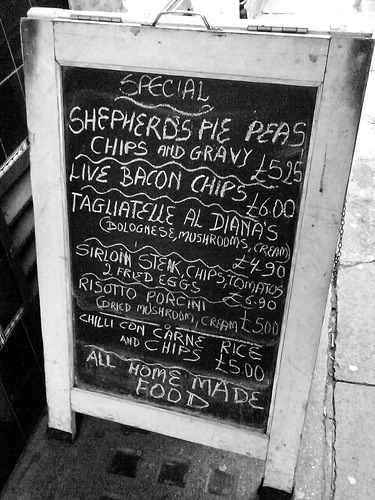 SPECIAL
SHEPHERD'S PIE PEAS
CHIPS AND GRAVY £5.25
LIVE BACON CHIPS £6.00
TAGLIATELLE AL DIANA'S
(BOLOGNESE, MUSHROOMS, CREAM)
£4.90
SIRLOIN STEAK, CHIPS, TOMATOS
2 FRIED EGGS £6.90
RISOTTO PORCINI
(DRIED MUSHROOM, CREAM £5.00
CHILLI CON CARNE RICE
AND CHIPS £5.00
ALL HOME MADE
FOOD